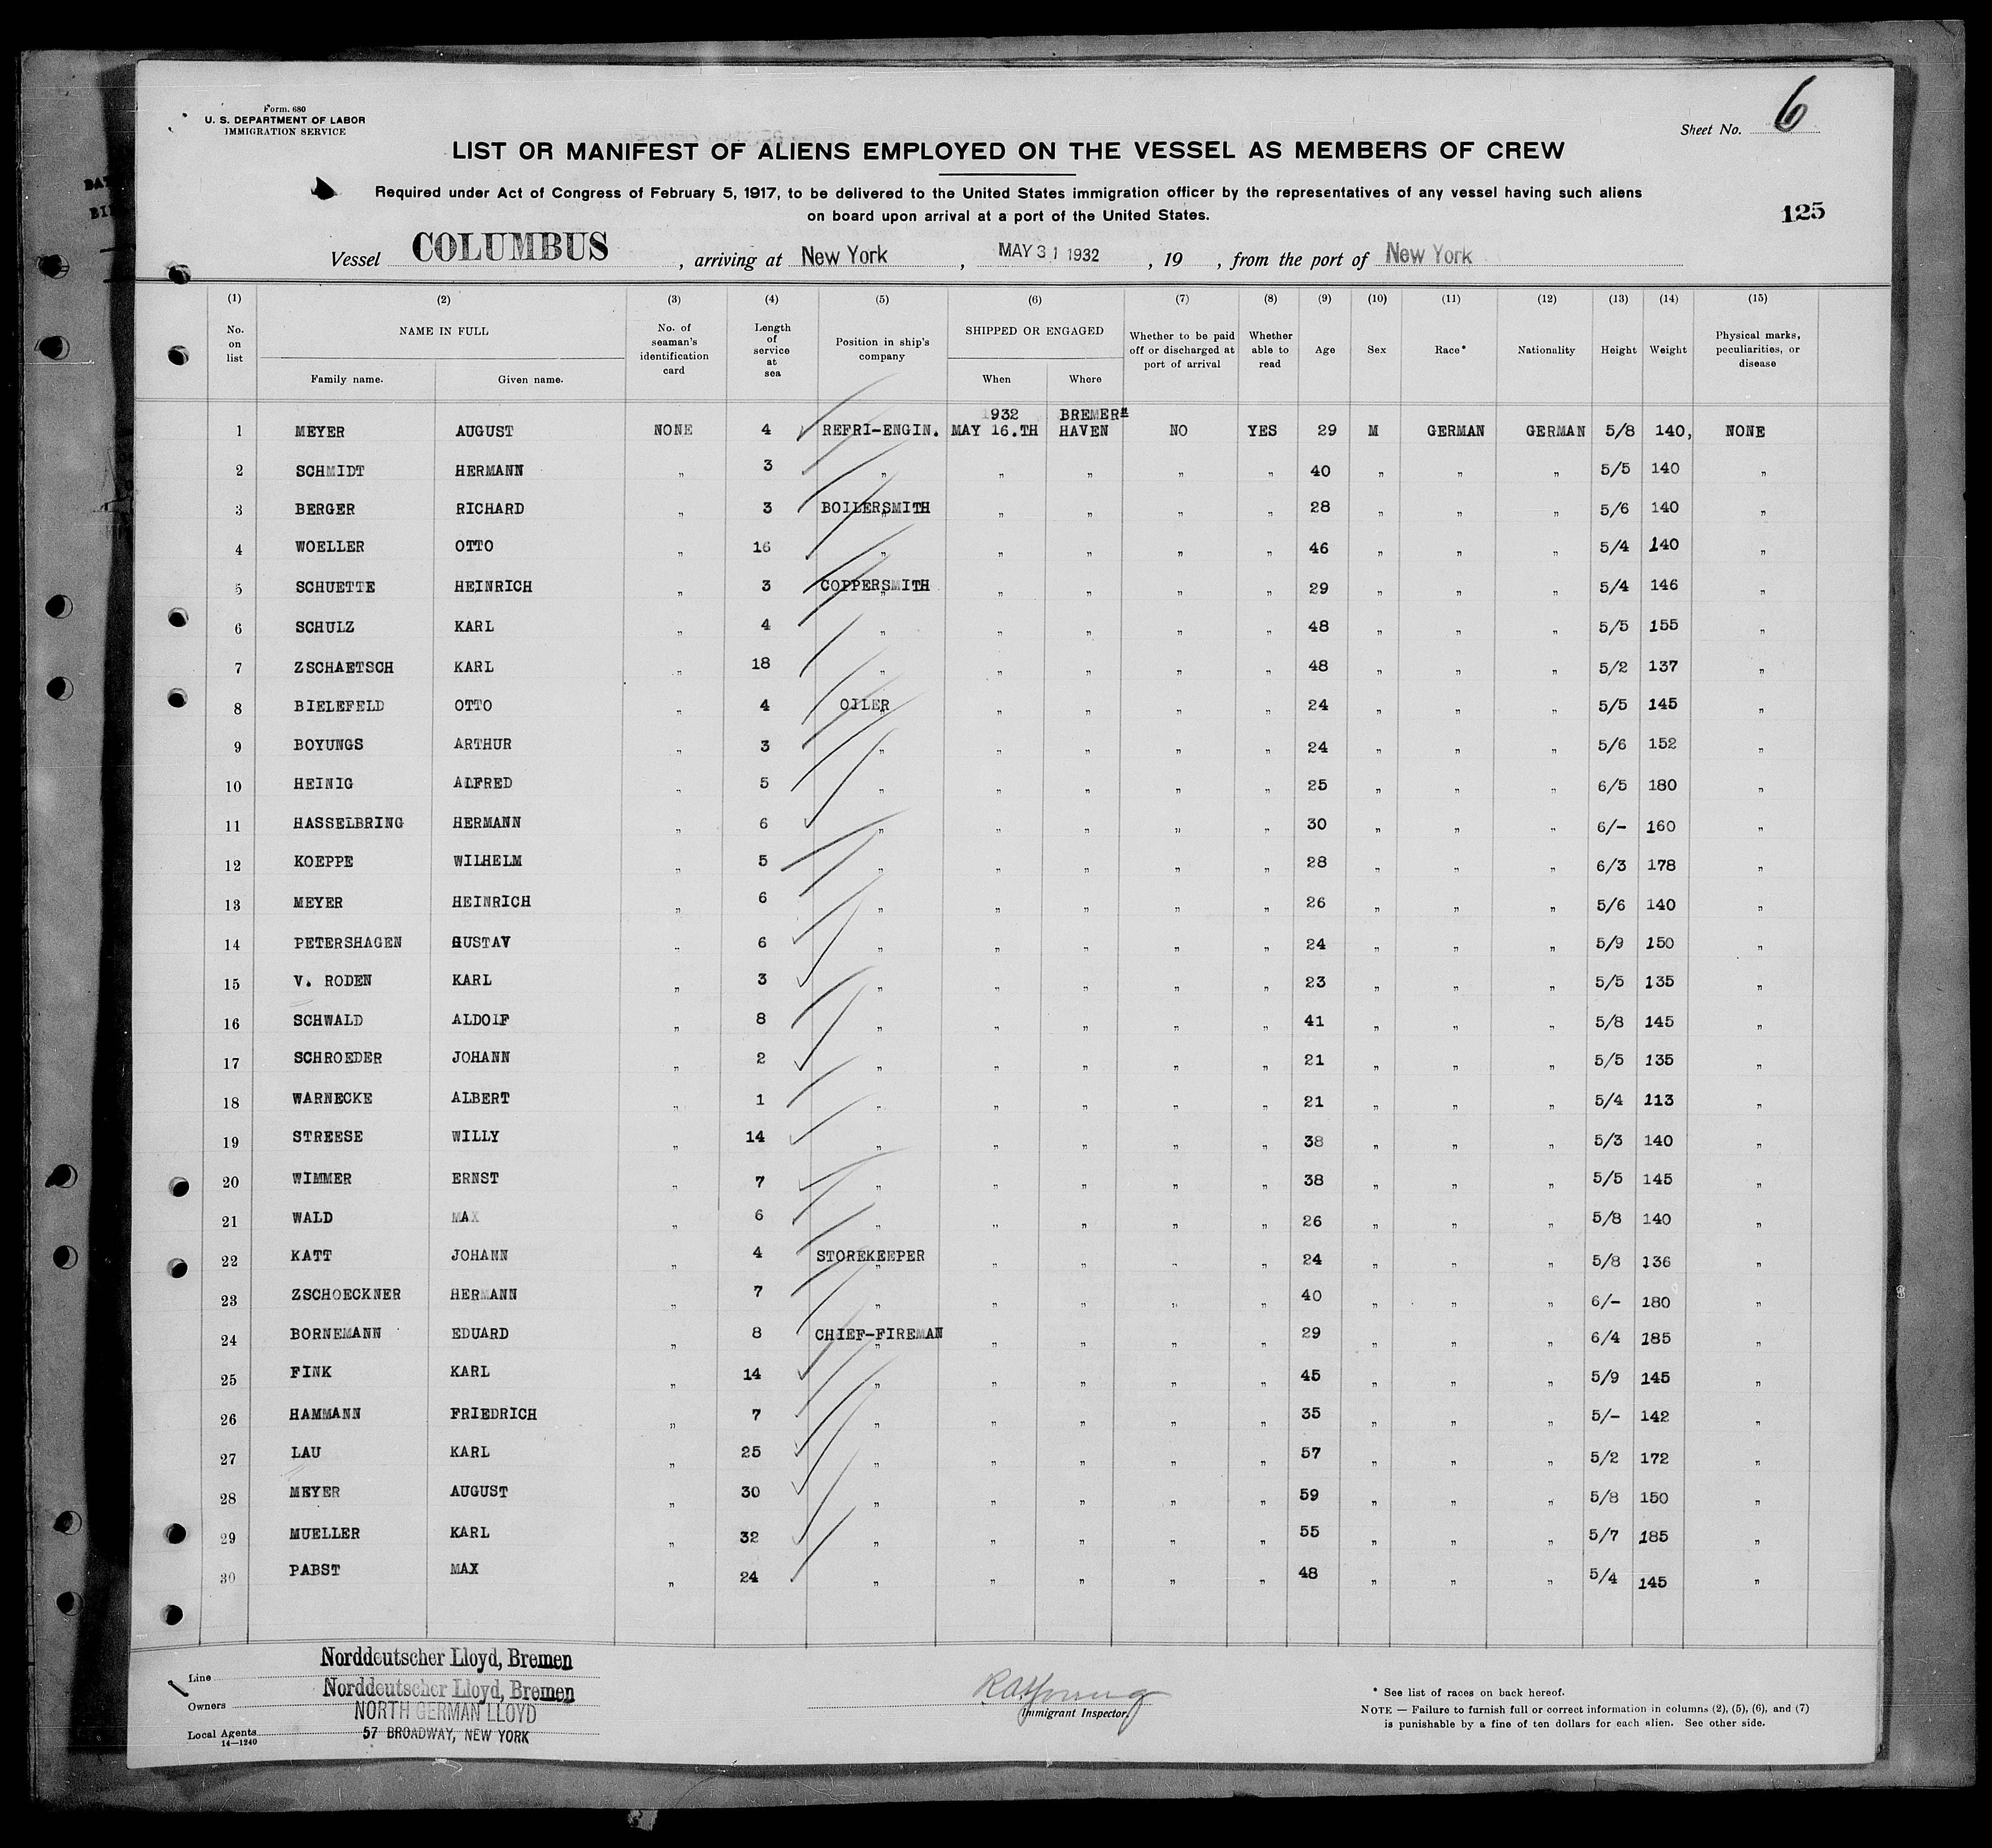 Form. 680
U. S. DEPARTMENT OF LABOR
IMMIGRATION SERVICE
Sheet No. 6
LIST OR MANIFEST OF ALIENS EMPLOYED ON THE VESSEL AS MEMBERS OF CREW
Required under Act of Congress of February 5, 1917, to be delivered to the United States immigration officer by the representatives of any vessel having such aliens
on board upon arrival at a port of the United States.
125
Vessel COLUMBUS , arriving at New York , MAY 31 1932 , 19 , from the port of New York
(1) (2) (3) (4) (5) (6) (7) (8) (9) (10) (11) (12) (13) (14) (15)
No. on list NAME IN FULL Family name. Given name. No. of seaman's identification card Length of service at sea Position in ship's company SHIPPED OR ENGAGED When Where Whether to be paid off or discharged at port of arrival Whether able to read Age Sex Race* Nationality Height Weight Physical marks, peculiarities, or disease
1932 BREMER=
1 MEYER AUGUST NONE 4 REFRI-ENGIN. MAY 16.TH HAVEN NO YES 29 M GERMAN GERMAN 5/8 140, NONE
2 SCHMIDT HERMANN „ 3 „ „ „ „ „ 40 „ „ „ 5/5 140 „
3 BERGER RICHARD „ 3 BOILERSMITH „ „ „ „ 28 „ „ „ 5/6 140 „
4 WOELLER OTTO „ 16 „ „ „ „ „ 46 „ „ „ 5/4 140 „
5 SCHUETTE HEINRICH „ 3 COPPERSMITH „ „ „ „ 29 „ „ „ 5/4 146 „
6 SCHULZ KARL „ 4 „ „ „ „ „ 48 „ „ „ 5/5 155 „
7 ZSCHAETSCH KARL „ 18 „ „ „ „ „ 48 „ „ „ 5/2 137 „
8 BIELEFELD OTTO „ 4 OILER „ „ „ „ 24 „ „ „ 5/5 145 „
9 BOYUNGS ARTHUR „ 3 „ „ „ „ „ 24 „ „ „ 5/6 152 „
10 HEINIG ALFRED „ 5 „ „ „ „ „ 25 „ „ „ 6/5 180 „
11 HASSELBRING HERMANN „ 6 „ „ „ „ „ 30 „ „ „ 6/- 160 „
12 KOEPPE WILHELM „ 5 „ „ „ „ „ 28 „ „ „ 6/3 178 „
13 MEYER HEINRICH „ 6 „ „ „ „ „ 26 „ „ „ 5/6 140 „
14 PETERSHAGEN GUSTAV „ 6 „ „ „ „ „ 24 „ „ „ 5/9 150 „
15 V. RODEN KARL „ 3 „ „ „ „ „ 23 „ „ „ 5/5 135 „
16 SCHWALD ALDOIF „ 8 „ „ „ „ „ 41 „ „ „ 5/8 145 „
17 SCHROEDER JOHANN „ 2 „ „ „ „ „ 21 „ „ „ 5/5 135 „
18 WARNECKE ALBERT „ 1 „ „ „ „ „ 21 „ „ „ 5/4 113 „
19 STREESE WILLY „ 14 „ „ „ „ „ 38 „ „ „ 5/3 140 „
20 WIMMER ERNST „ 7 „ „ „ „ „ 38 „ „ „ 5/5 145 „
21 WALD MAX „ 6 „ „ „ „ „ 26 „ „ „ 5/8 140 „
22 KATT JOHANN „ 4 STOREKEEPER „ „ „ „ 24 „ „ „ 5/8 136 „
23 ZSCHOECKNER HERMANN „ 7 „ „ „ „ „ 40 „ „ „ 6/- 180 „
24 BORNEMANN EDUARD „ 8 CHIEF-FIREMAN „ „ „ „ 29 „ „ „ 6/4 185 „
25 FINK KARL „ 14 „ „ „ „ „ 45 „ „ „ 5/9 145 „
26 HAMMANN FRIEDRICH „ 7 „ „ „ „ „ 35 „ „ „ 5/- 142 „
27 LAU KARL „ 25 „ „ „ „ „ 57 „ „ „ 5/2 172 „
28 MEYER AUGUST „ 30 „ „ „ „ „ 59 „ „ „ 5/8 150 „
29 MUELLER KARL „ 32 „ „ „ „ „ 55 „ „ „ 5/7 185 „
30 PABST MAX „ 24 „ „ „ „ „ 48 „ „ „ 5/4 145 „
Line Norddeutscher Lloyd, Bremen
Owners Norddeutscher Lloyd, Bremen
NORTH GERMAN LLOYD
Local Agents 57 BROADWAY, NEW YORK
14—1240
RAYoung
Immigrant Inspector.
* See list of races on back hereof.
NOTE — Failure to furnish full or correct information in columns (2), (5), (6), and (7)
is punishable by a fine of ten dollars for each alien. See other side.